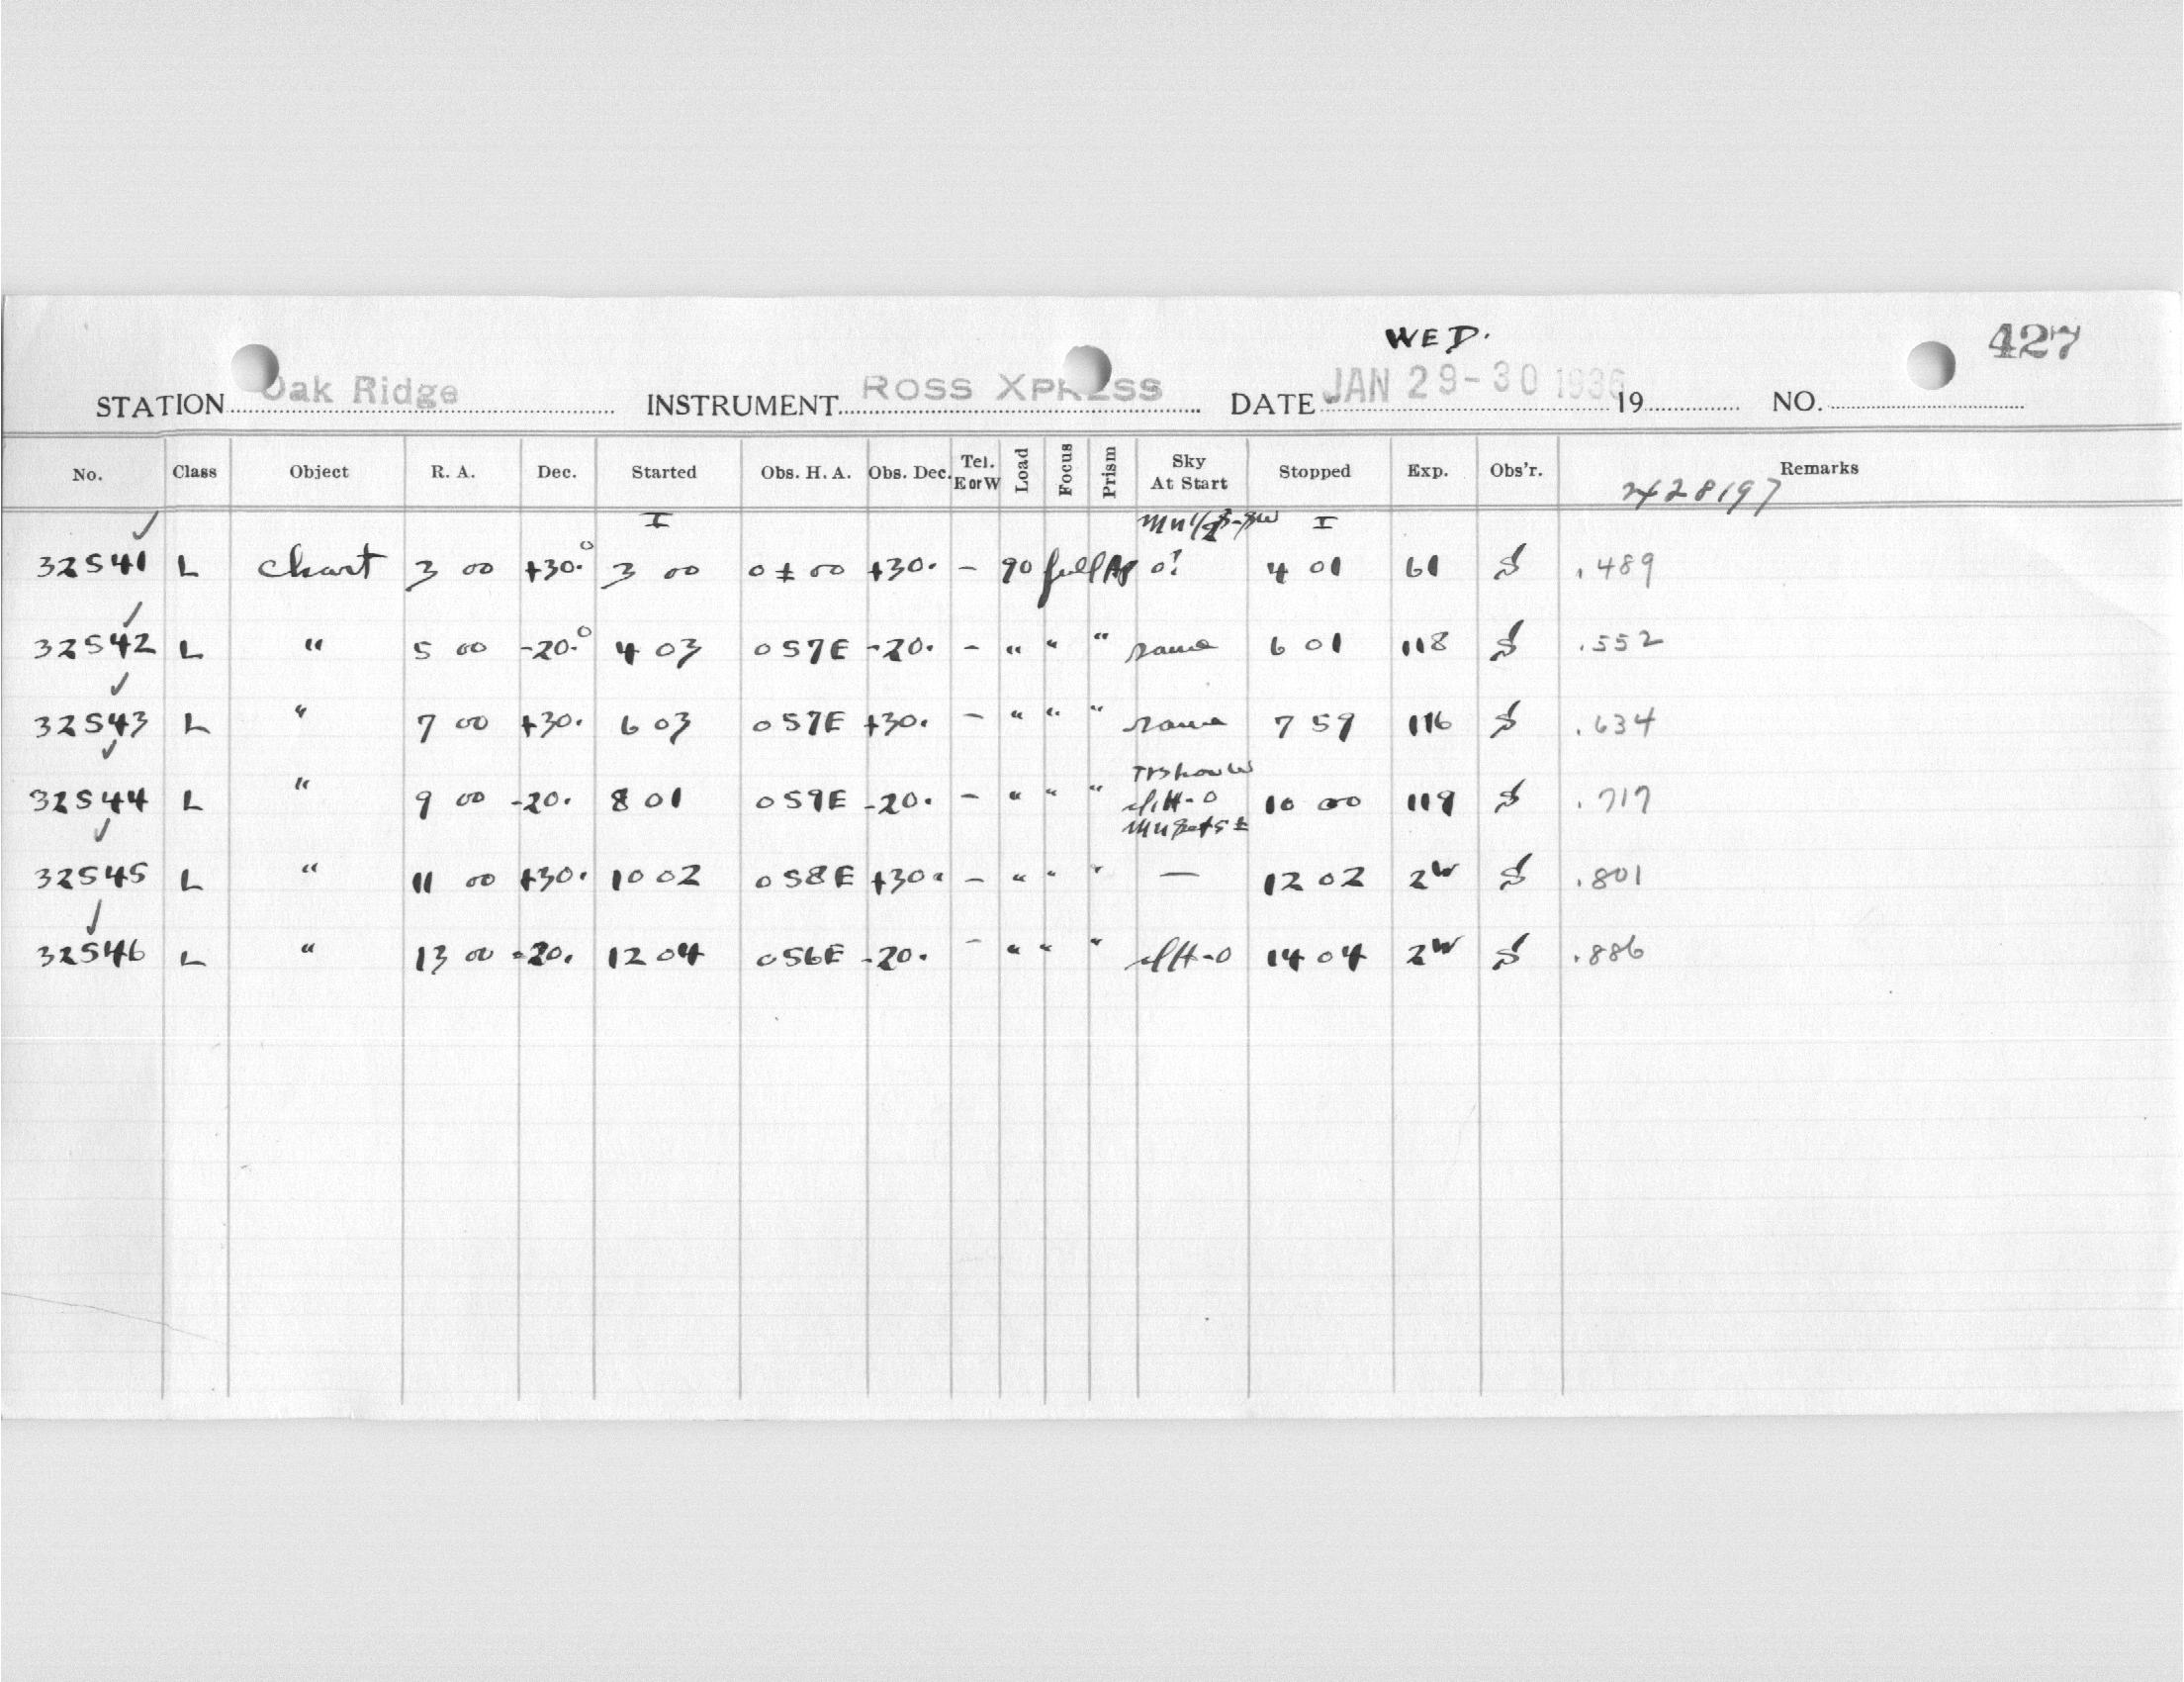 WED.
427
STATION Oak Ridge INSTRUMENT ROSS XPRESS DATE JAN 29-30 1936 19 NO.
No. Class Object R. A. Dec. Started Obs. H. A. Obs. Dec. Tel. E or W Load Focus Prism Sky At Start Stopped Exp. Obs'r. Remarks
2428197
I I
32541 L chart 3 00 +30.° 3 00 0 ± 00 +30. - 90 full Ap 0? 4 01 61 .489
32542 L " 5 00 -20.° 4 03 0 57E -20. - " " " same 6 01 118 .552
32543 L " 7 00 +30. 6 03 0 57E +30. - " " " same 7 59 116 .634
32544 L " 9 00 -20. 8 01 0 59E -20. - " " " 10 00 119 .717
32545 L " 11 00 +30. 10 02 0 58E +30. - " " " — 12 02 2 .801
32546 L " 13 00 -20. 12 04 0 56E -20. - " " " 14 04 2 .886